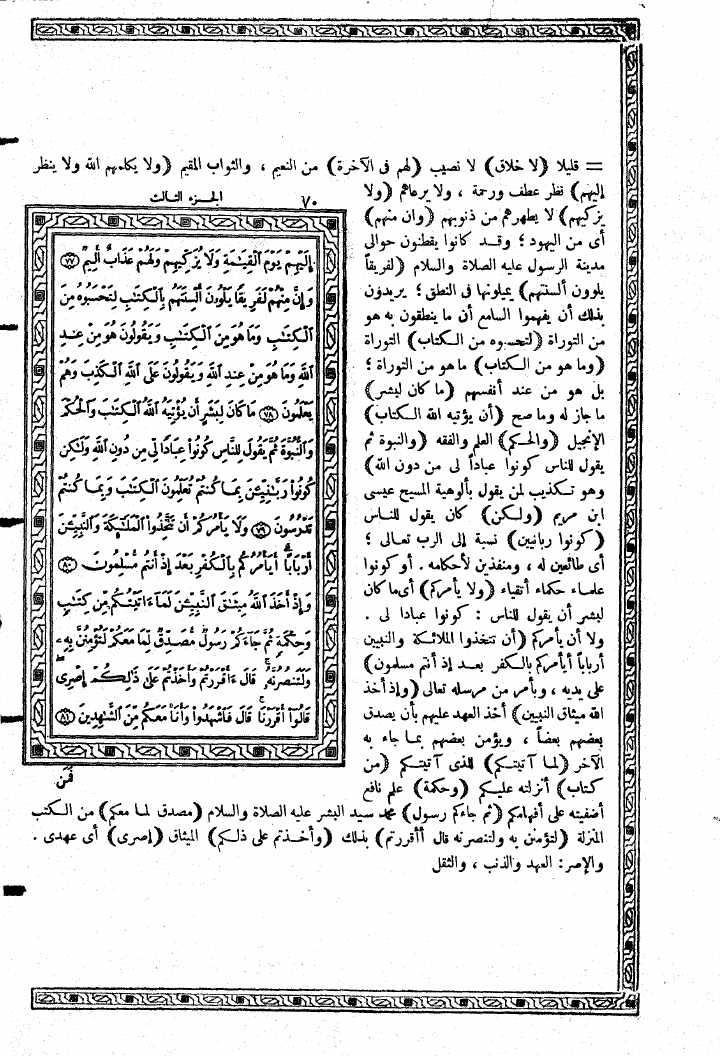 = قليلا (لا خلاق) لا نصيب (لهم فى الآخرة) من النعيم ، والثواب المقيم (ولا يكلمهم الله ولا ينظر
إليهم) نظر عطف ورحمة ، ولا يرعاهم (ولا
يزكيهم) لا يطهرهم من ذنوبهم (وان منهم)
أى من اليهود ؛ وقـد كانوا يقطنون حوالى
مدينة الرسول عليه الصلاة والسلام (لفريقاً
يلوون ألسنتهم) يميلونها فى النطق ؛ يريدون
بذلك أن يفهموا السامع أن ما ينطقون به هو
من التوراة (لتحسبوه من الكتاب) التوراة
(وما هو من الكتاب) ما هو من التوراة ؛
بل هو من عند أنفسهم (ما كان لبشر)
ما جاز له وما صح (أن يؤتيه الله الكتاب)
الإنجيل (والحكم) العلم والفقه (والنبوة ثم
يقول للناس كونوا عباداً لى من دون الله)
وهو تكذيب لمن يقول بألوهية المسيح عيسى
ابن مريم (ولكن) كان يقول للناس
(كونوا ربانيين) نسبة إلى الرب تعالى ؛
أى طائعين له ، ومنفذين لأحكامه . أو كونوا
علماء حكماء أتقياء (ولا يأمركم) أى ما كان
لبشر أن يقول للناس : كونوا عبادا لى .
ولا أن يأمركم (أن تتخذوا الملائكة والنبيين
أرباباً أيأمركم بالكفر بعـد إذ أنتم مسلمون)
على يديه ، وبأمر من مرسله تعالى (وإذ أخذ
الله ميثاق النبيين) أخذ العهد عليهم بأن يصدق
بعضهم بعضاً ، ويؤمن بعضهم بما جاء به
الآخر (لما آتيتكم) للذى آتيتكم (من
كتاب) أنزلته عليكم (وحكمة) علم نافع
أضفيته على أفهامكم (ثم جاءكم رسول) محمد سيد البشر عليه الصلاة والسلام (مصدق لما معكم) من الكتب
المنزلة (لتؤمنن به ولتنصرنه قال أأقررتم) بذلك (وأخذتم على ذلكم) الميثاق (إصرى) أى عهدى .
والإصر : العهد والذنب ، والثقل
٧٠ الجزء الثالث
إِلَيْهِمْ يَوْمَ الْقِيَٰمَةِ وَلَا يُزَكِّيهِمْ وَلَهُمْ عَذَابٌ أَلِيمٌ ﴿٧٧﴾
وَإِنَّ مِنْهُمْ لَفَرِيقًا يَلْوُۥنَ أَلْسِنَتَهُم بِالْكِتَٰبِ لِتَحْسَبُوهُ مِنَ
الْكِتَٰبِ وَمَا هُوَ مِنَ الْكِتَٰبِ وَيَقُولُونَ هُوَ مِنْ عِندِ
اللَّهِ وَمَا هُوَ مِنْ عِندِ اللَّهِ وَيَقُولُونَ عَلَى اللَّهِ الْكَذِبَ وَهُمْ
يَعْلَمُونَ ﴿٧٨﴾ مَا كَانَ لِبَشَرٍ أَن يُؤْتِيَهُ اللَّهُ الْكِتَٰبَ وَالْحُكْمَ
وَالنُّبُوَّةَ ثُمَّ يَقُولَ لِلنَّاسِ كُونُوا عِبَادًا لِّى مِن دُونِ اللَّهِ وَلَٰكِن
كُونُوا رَبَّٰنِيِّۦنَ بِمَا كُنتُمْ تُعَلِّمُونَ الْكِتَٰبَ وَبِمَا كُنتُمْ
تَدْرُسُونَ ﴿٧٩﴾ وَلَا يَأْمُرَكُمْ أَن تَتَّخِذُوا الْمَلَٰٓئِكَةَ وَالنَّبِيِّۦنَ
أَرْبَابًا أَيَأْمُرُكُم بِالْكُفْرِ بَعْدَ إِذْ أَنتُم مُّسْلِمُونَ ﴿٨٠﴾
وَإِذْ أَخَذَ اللَّهُ مِيثَٰقَ النَّبِيِّۦنَ لَمَآ ءَاتَيْتُكُم مِّن كِتَٰبٍ
وَحِكْمَةٍ ثُمَّ جَآءَكُمْ رَسُولٌ مُّصَدِّقٌ لِّمَا مَعَكُمْ لَتُؤْمِنُنَّ بِهِۦ
وَلَتَنصُرُنَّهُۥ قَالَ ءَأَقْرَرْتُمْ وَأَخَذْتُمْ عَلَىٰ ذَٰلِكُمْ إِصْرِى
قَالُوٓا أَقْرَرْنَا قَالَ فَاشْهَدُوا وَأَنَا۠ مَعَكُم مِّنَ الشَّٰهِدِينَ ﴿٨١﴾
فَمَن